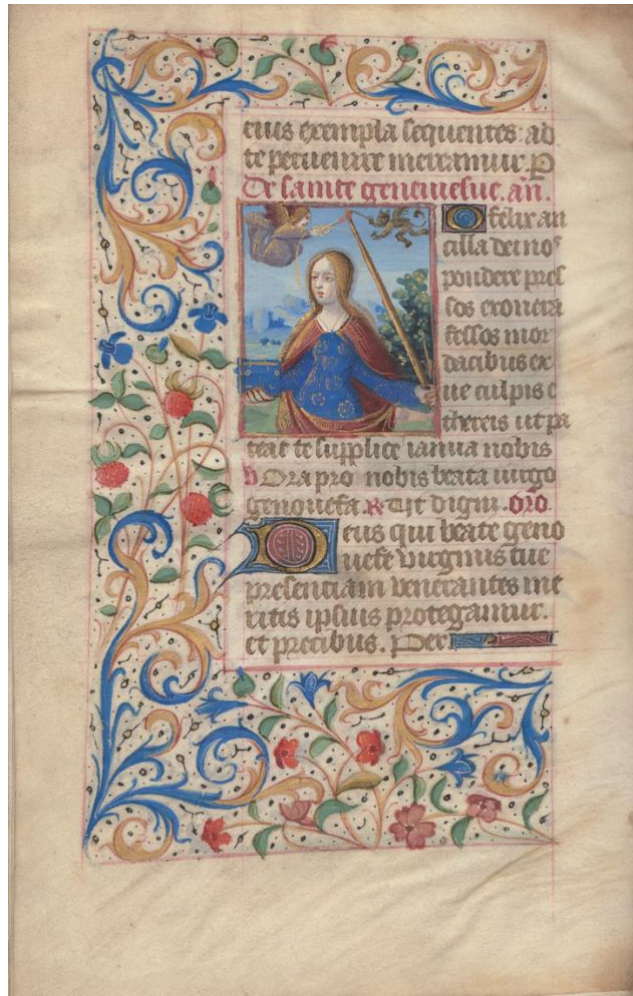 eius exempla sequentes: ad
te peruenire mereamur. P
De sainte geneuiesue. an̄.
O felix an
cilla dei nos
pondere pres
sos exonera
fessos mor
dacibus ex
ue culpis e
thereis ut pa
teat te supplice ianua nobis
V Ora pro nobis beata uirgo
genouefa. R Ut digni. oro.
Deus qui beate geno
uefe virginis tue
presenciam venerantes me
ritis ipsius protegamur.
et precibus. Per